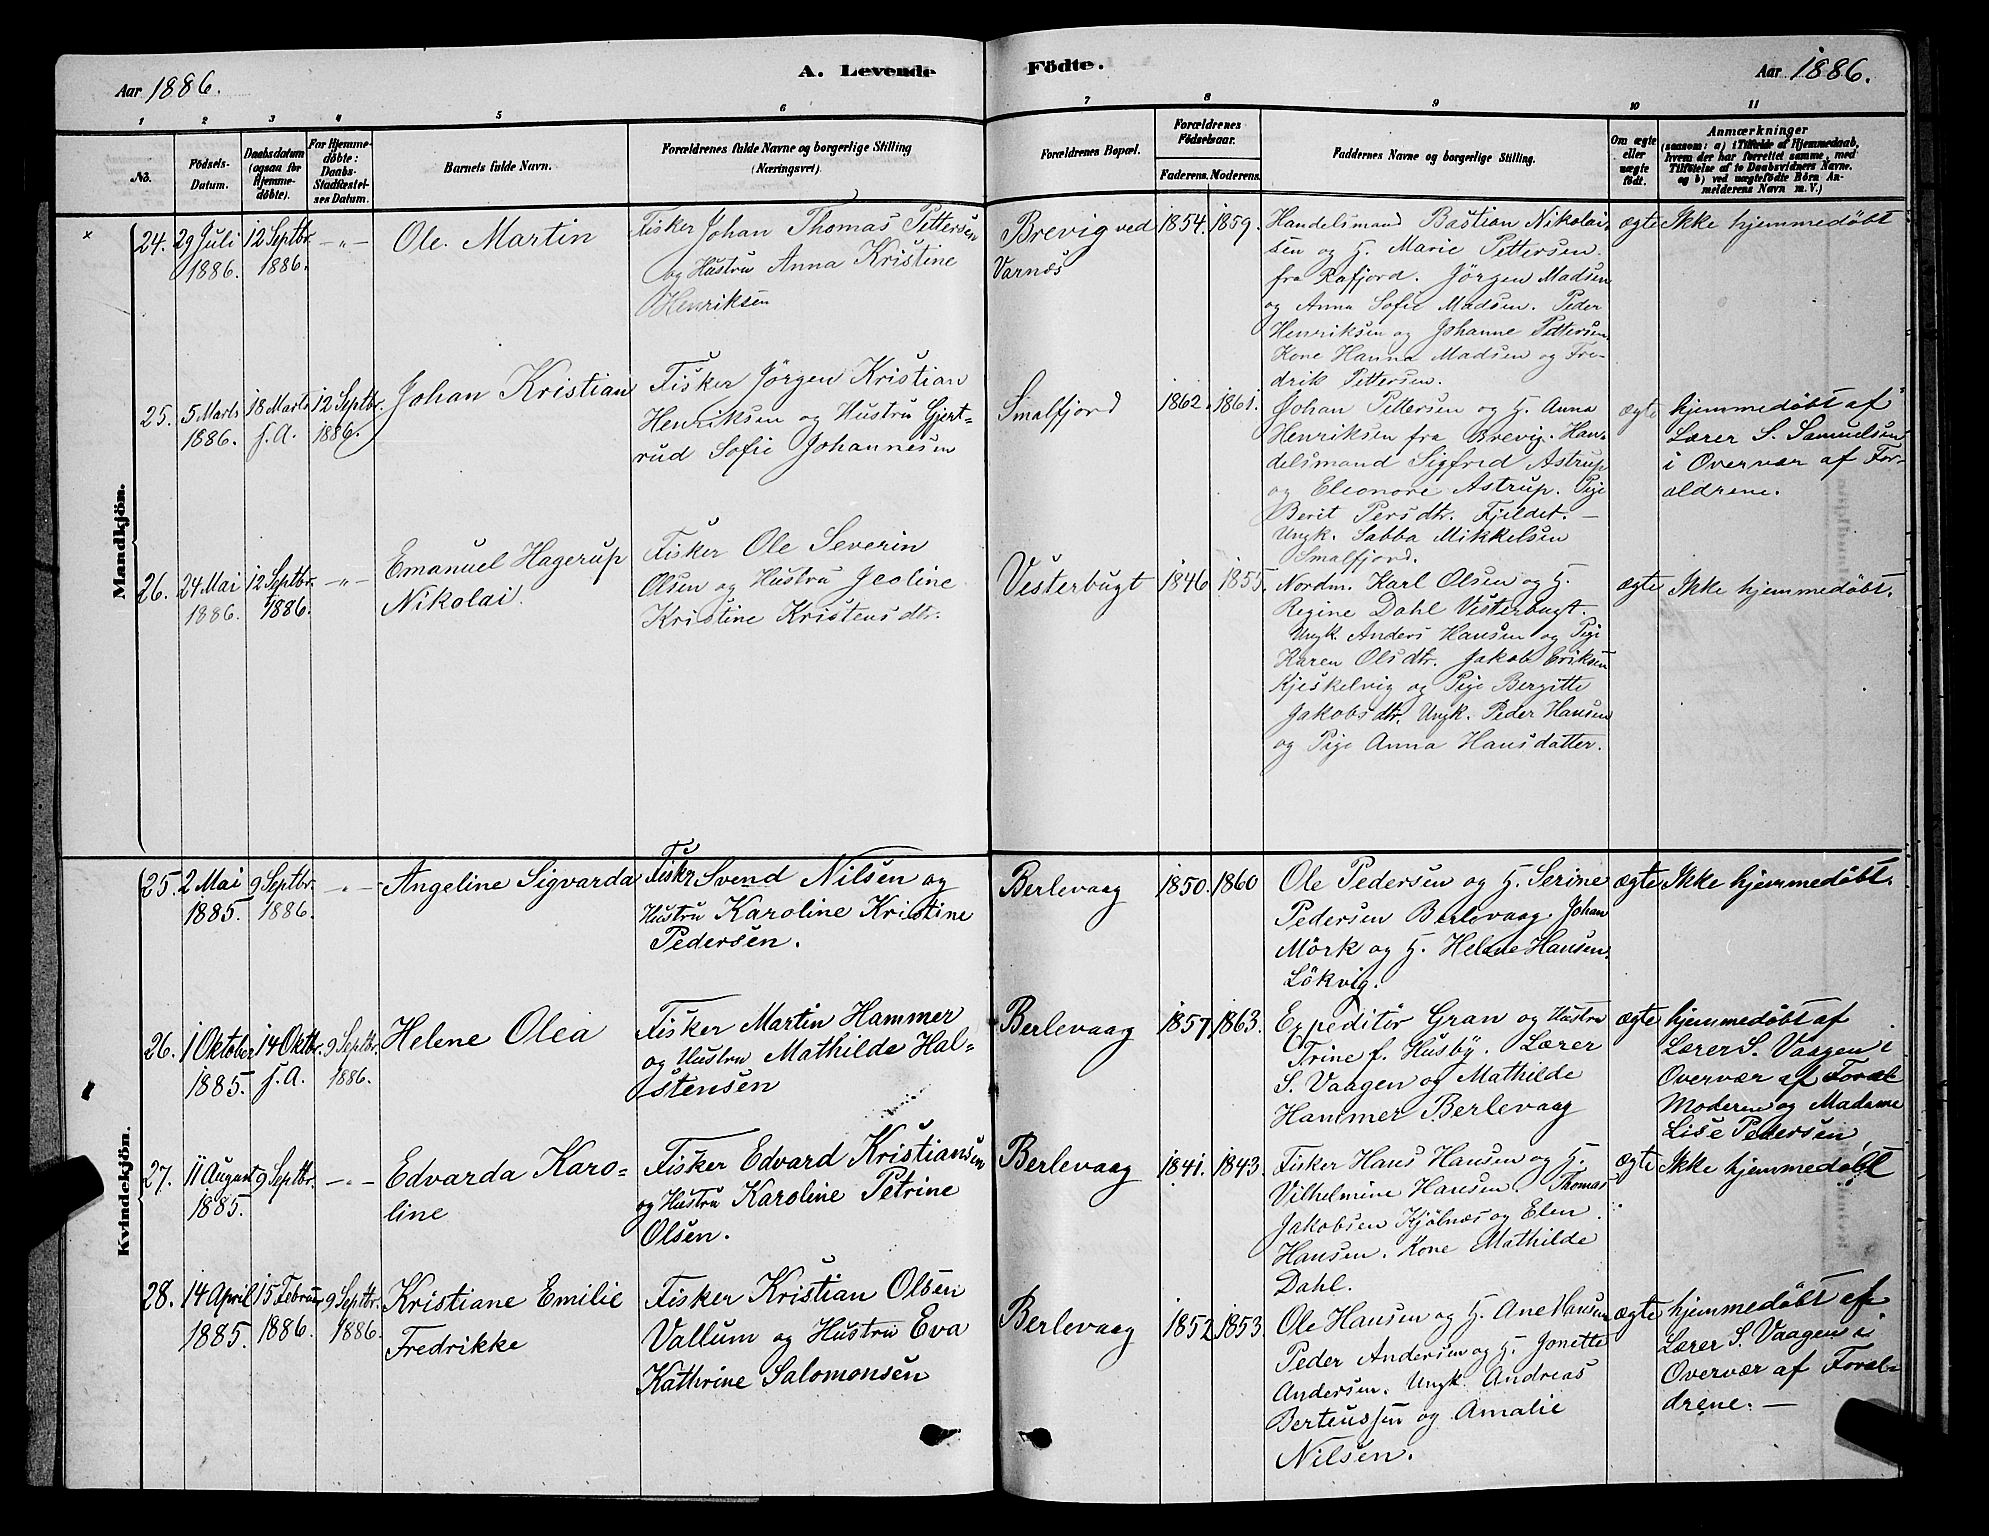 Aar 1886.
A. Levende
Födte.
Aar 1886.
1 2 3 4 5 6 7 8 9 10 11
No.
Födsels-
Datum.
Daabsdatum
(ogsaa for
Hjemme-
döbte).
For Hjemme-
döbte:
Daabs-
Stadfæstel-
ses Datum.
Barnets fulde Navn.
Forældrenes fulde Navne og borgerlige Stilling
(Næringsvei).
Forældrenes Bopæl.
Forældrenes
Födselsaar.
Faderens. Moderens.
Faddernes Navne og borgerlige Stilling.
Om ægte
eller
uægte
født.
Anmærkninger
(saasom: a) i Tilfælde af Hjemmedaab,
hvem der har forrettet samme, med
Tilföielse af to Daabsvidners Navne,
og b) ved uægtefödte Börn An-
melderens Navn m. V.)
Mandkjön.
24.
29 Juli
1886.
12 Septbr.
1886.
-"-
Ole Martin
Fisker Johan Thomas Pettersen
og Hustru Anna Kristine
Henriksen
Brevig ved
Varnes
1854. 1859.
Handelsmand Bastian Nikolai-
sen og H. Marie Pettersen
fra Rafjord. Jörgen Madsen
og Anna Sofie Madsen. Peder
Henriksen og Johanne Pettersen.
Kone Hanna Madsen og Fre-
drik Pettersen.
ægte
Ikke hjemmedøbt
25.
5 Marts
1886.
18 Marts
s. A.
12 Septbr.
1886.
Johan Kristian
Fisker Jörgen Kristian
Henriksen og Hustru Gjert-
rud Sofie Johannesen
Smalfjord
1862. 1861.
Johan Pettersen og H. Anna
Henriksen fra Brevig. Han-
delsmand Sigfred Astrup
og Eleonore Astrup. Pige
Berit Persdtr. Fjeldet. -
Ungk. Sabba Mikkelsen
Smalfjord.
ægte
hjemmedøbt af
Lærer S. Samuelsen
i Overvær af For-
ældrene.
26.
24 Mai
1886.
12 Septbr.
1886.
-"-
Emanuel Hagerup
Nikolai.
Fisker Ole Severin
Olsen og Hustru Jeoline
Kristine Kristensdtr.
Vesterbugt
1846 1855.
Nordm. Karl Olsen og H.
Regine Dahl Vesterbugt.
Ungk. Anders Hansen og Pige
Karen Olsdtr. Jakob Eriksen
Kjeskelvig og Pige Bergitte
Jakobsdtr. Ungk. Peder Hansen
og Pige Anna Hansdatter.
ægte
Ikke hjemmedøbt.
Kvindekjön.
25.
2 Mai
1885.
9 Septbr.
1886.
-"-
Angeline Sigvarda
Fiskr Svend Nilsen og
Hustru Karoline Kristine
Pedersen.
Berlevaag
1850. 1860
Ole Pedersen og H. Serine
Pedersen Berlevaag. Johan
Mörk og H. Helene Hansen
Lökvig.
ægte
Ikke hjemmedøbt.
26.
1 Oktober
1885.
14 Oktbr.
s. A.
9 Septbr.
1886.
Helene Olea
Fisker Martin Hammer
og Hustru Mathilde Hal-
stensen
Berlevaag
1857 1863.
Expeditör Gran og Hustru
Trine f. Husby. Lærer
S. Vaagen og Mathilde
Hammer Berlevaag
ægte
hjemmedøbt af
Lærer S. Vaagen i
Overvær af
Moderen og Madame
Lise Pedersen,
27.
11 August
1885.
9 Septbr.
-"-
Edvarda Karo-
line
Fisker Edvard Kristiansen
og Hustru Karoline Petrine
Olsen.
Berlevaag
1841. 1843.
Fisker Hans Hansen og H.
Vilhelmine Hansen. Thomas
Jakobsen Kjölnæs og Elen
Hansen. Kone Mathilde
Dahl.
ægte
Ikke hjemmedøbt
28.
14 April
1885.
15 Februar
1886.
9 Septbr.
1886.
Kristiane Emilie
Fredrikke
Fisker Kristian Olsen
Vallum og Hustru Eva
Kathrine Salomonsen
Berlevaag
1852 1853.
Ole Hansen og H. Ane Hansen
Peder Andersen og H. Jonette
Andersen. Ungk. Andreas
Berteussen og Amalie
Nilsen.
ægte
hjemmedøbt af
Lærer S. Vaagen i
Overvær af Foræl-
drene. -